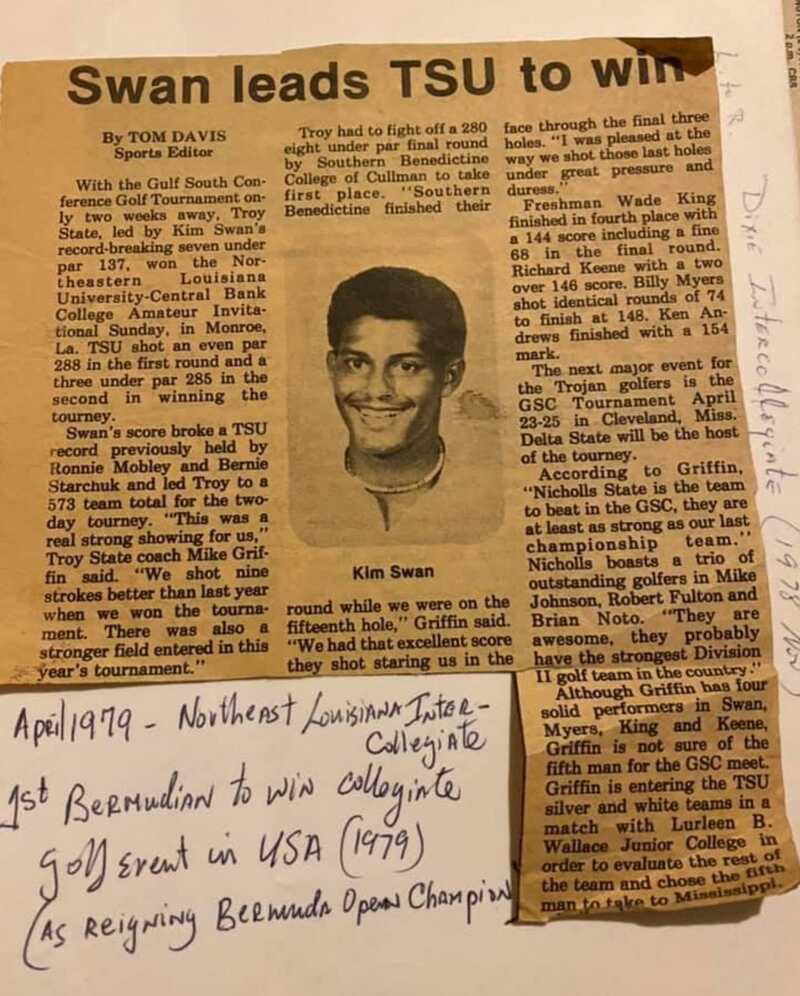 Swan leads TSU to win
By TOM DAVIS
Sports Editor
With the Gulf South Con-
ference Golf Tournament on-
ly two weeks away, Troy
State, led by Kim Swan's
record-breaking seven under
par 137, won the Nor-
theastern Louisiana
University-Central Bank
College Amateur Invita-
tional Sunday, in Monroe,
La. TSU shot an even par
288 in the first round and a
three under par 285 in the
second in winning the
tourney.
Swan's score broke a TSU
record previously held by
Ronnie Mobley and Bernie
Starchuk and led Troy to a
573 team total for the two-
day tourney. "This was a
real strong showing for us,"
Troy State coach Mike Grif-
fin said. "We shot nine
strokes better than last year
when we won the tourna-
ment. There was also a
stronger field entered in this
year's tournament."
Troy had to fight off a 280
eight under par final round
by Southern Benedictine
College of Cullman to take
first place. "Southern
Benedictine finished their
Kim Swan
round while we were on the
fifteenth hole," Griffin said.
"We had that excellent score
they shot staring us in the
face through the final three
holes. "I was pleased at the
way we shot those last holes
under great pressure and
duress."
Freshman Wade King
finished in fourth place with
a 144 score including a fine
68 in the final round.
Richard Keene with a two
over 146 score. Billy Myers
shot identical rounds of 74
to finish at 148. Ken An-
drews finished with a 154
mark.
The next major event for
the Trojan golfers is the
GSC Tournament April
23-25 in Cleveland, Miss.
Delta State will be the host
of the tourney.
According to Griffin,
"Nicholls State is the team
to beat in the GSC, they are
at least as strong as our last
championship team."
Nicholls boasts a trio of
outstanding golfers in Mike
Johnson, Robert Fulton and
Brian Noto. "They are
awesome, they probably
have the strongest Division
II golf team in the country."
Although Griffin has four
solid performers in Swan,
Myers, King and Keene,
Griffin is not sure of the
fifth man for the GSC meet.
Griffin is entering the TSU
silver and white teams in a
match with Lurleen B.
Wallace Junior College in
order to evaluate the rest of
the team and chose the fifth
man to take to Mississippi.
L. to R.
Dixie Intercollegiate (1978 Nov)
2 p.m. CBS
April 1979 - Northeast Louisiana Inter-
Collegiate
1st Bermudian to win collegiate
golf event in USA (1979)
(as reigning Bermuda Open Champion